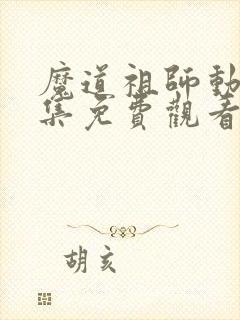 魔道祖師動
集免費觀看
胡亥